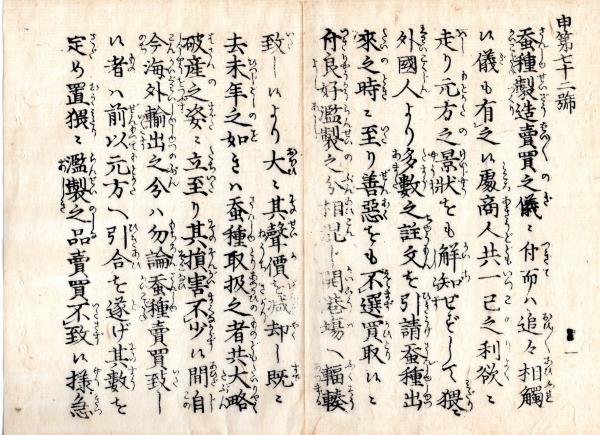 申第七十二號
蚕種製造賣買之儀ニ付而ハ追々相觸
い儀も有之い處商人共一己之利欲ニ
走り元方之景状をも解知せずして猥ニ
外國人より多數之註文を引請蚕種出
來之時ニ至り善惡をも不選買取いニ
付良好濫製之分相混し開港場へ輻輳
致しいより大ニ其聲價を減却し既ニ
去未年之如きハ蚕種取扱之者共大略
破産之姿ニ立至り其損害不少い間自
今海外輸出之分ハ勿論蚕種賣買致し
い者ハ前以元方へ引合を遂げ其數を
定め置猥ニ濫製之品賣買不致い様急